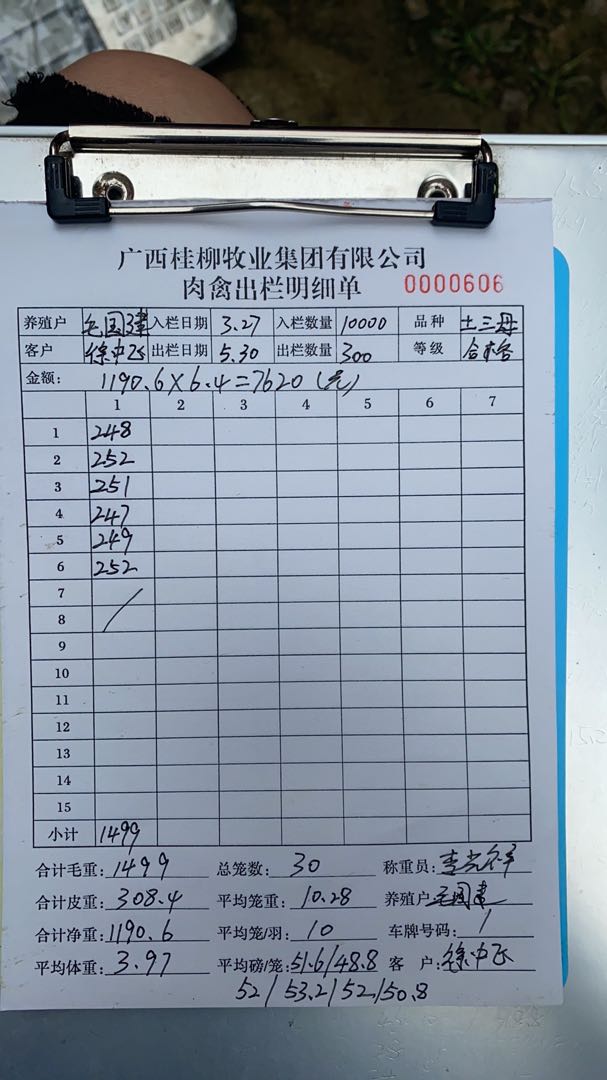 广西桂柳牧业集团有限公司
肉禽出栏明细单 0000606
养殖户 毛国建 入栏日期 3.27 入栏数量 10000 品种 土三母
客户 徐中飞 出栏日期 5.30 出栏数量 300 等级
金额: 1190.6×6.4=7620(元)
1 2 3 4 5 6 7
1 248
2 252
3 251
4 247
5 249
6 252
7
8
9
10
11
12
13
14
15
小计 1499
合计毛重: 1499 总笼数: 30 称重员:
合计皮重: 308.4 平均笼重: 10.28 养殖户: 毛国建
合计净重: 1190.6 平均笼/羽: 10 车牌号码: /
平均体重: 3.97 平均磅/笼: 51.6/48.8 客 户: 徐中飞
52/53.2/52/50.8